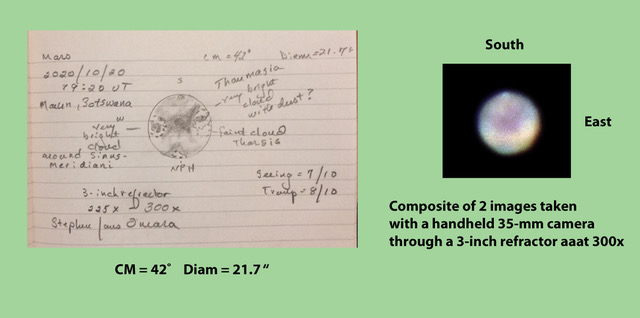 Mars
CM = 42° Diam = 21.7"
2020/10/20
19:20 UT
Maun, Botswana
S
Thaumasia
very bright
cloud
with dust?
W
very
bright
cloud
around Sinus-
Meridiani
Faint cloud
Tharsis
NPH
Seeing = 7/10
Transp = 8/10
3-inch refractor
225x 300x
Stephen James O'Meara
CM = 42° Diam = 21.7“
South
East
Composite of 2 images taken
with a handheld 35-mm camera
through a 3-inch refractor aaat 300x